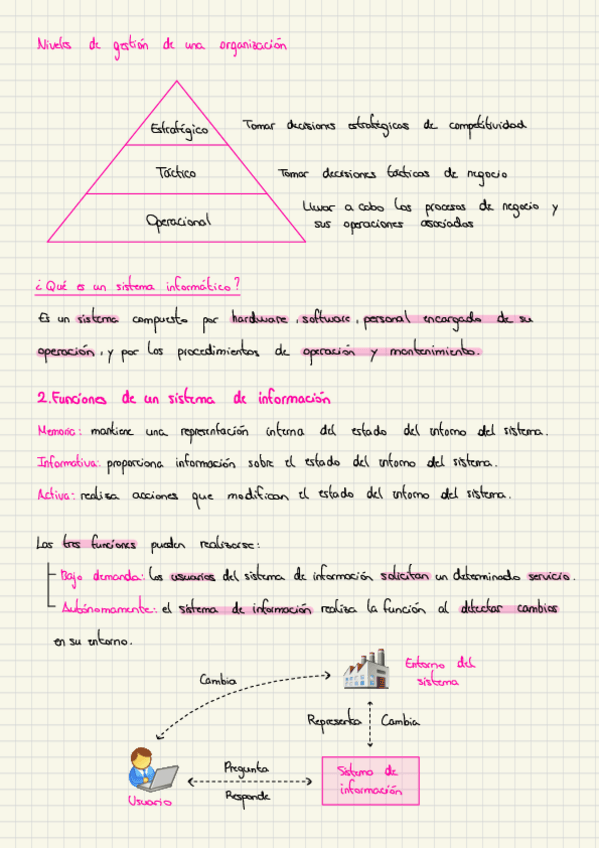 Niveles de gestión de una organización
Estratégico
Tomar decisiones estratégicas de competitividad
Táctico
Tomar decisiones tácticas de negocio
Operacional
Llevar a cabo los procesos de negocio y
sus operaciones asociadas
¿Qué es un sistema informático?
Es un sistema compuesto por hardware, software, personal encargado de su
operación, y por los procedimientos de operación y mantenimiento.
2.Funciones de un sistema de información
Memoria: mantiene una representación interna del estado del entorno del sistema.
Informativa: proporciona información sobre el estado del entorno del sistema.
Activa: realiza acciones que modifican el estado del entorno del sistema.
Las tres funciones pueden realizarse:
Bajo demanda: los usuarios del sistema de información solicitan un determinado servicio.
Autónomamente: el sistema de información realiza la función al detectar cambios
en su entorno.
Cambia
Entorno del
sistema
Representa
Cambia
Pregunta
Responde
Usuario
Sistema de
información